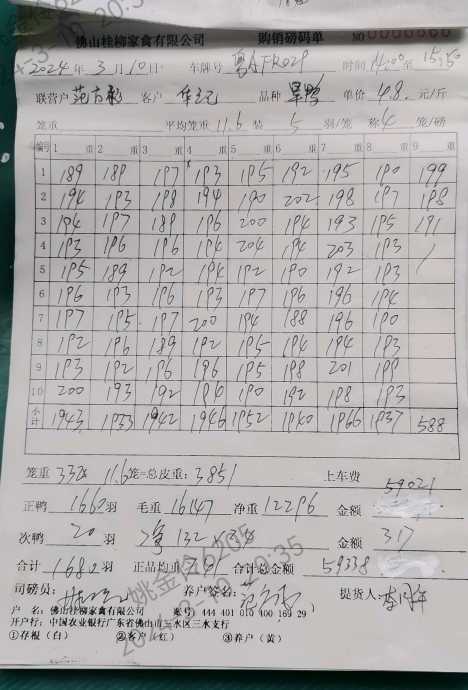 佛山桂柳家禽有限公司 购销磅码单 NO
2024年3月10日 车牌号 粤AFR029 时间 14:00至15:50
联营户 客户 品种 旱鸭 单价 4.8 元/斤
笼重 平均笼重 11.6 装 5 羽/笼 称 4 笼/磅
编号 1 重 2 重 3 重 4 重 5 重 6 重 7 重 8 重 9 重
1 189 189 197 193 195 192 195 190 199
2 194 193 198 194 190 202 198 197 198
3 194 197 189 196 200 194 193 195 191
4 193 196 196 194 204 194 203 193
5 195 189 192 194 192 190 192 193
6 196 193 196 193 197 196 196 194
7 197 195 197 200 194 188 196 190
8 192 196 189 192 195 194 194 193
9 193 192 196 196 195 198 201 199
10 200 193 192 194 190 192 198 193
小计 1943 1933 1942 1946 1952 1940 1966 1937 588
笼重 332 11.6 笼=总皮重: 3851 上车费
59021
正鸭 1660 羽 毛重 16147 净重 12296 金额
次鸭 20 羽 净 132 金额 317
合计 1680 羽 正品均重 合计总金额 59338
司磅员: 养户签名: 提货人:
户 名: 佛山桂柳家禽有限公司 账号: 444 401 010 400 169 29
开户行: 中国农业银行广东省佛山市三水区三水支行
①存根(白) ②客户(红) ③养户(黄)